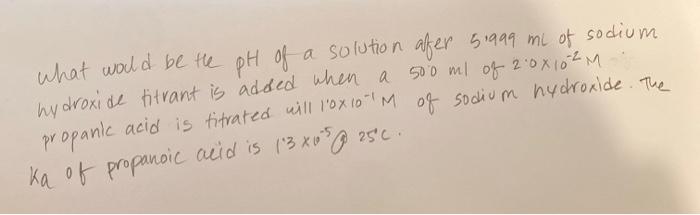 what would be the pH of a solution afer 5.999 ml of sodium
hydroxide titrant is added when a 50.0 ml of 2.0x10⁻² M
propanic acid is titrated will 1.0x10⁻¹ M of sodium hydroxide. The
Ka of propanoic acid is 1.3 x10⁻⁵ @ 25°C.